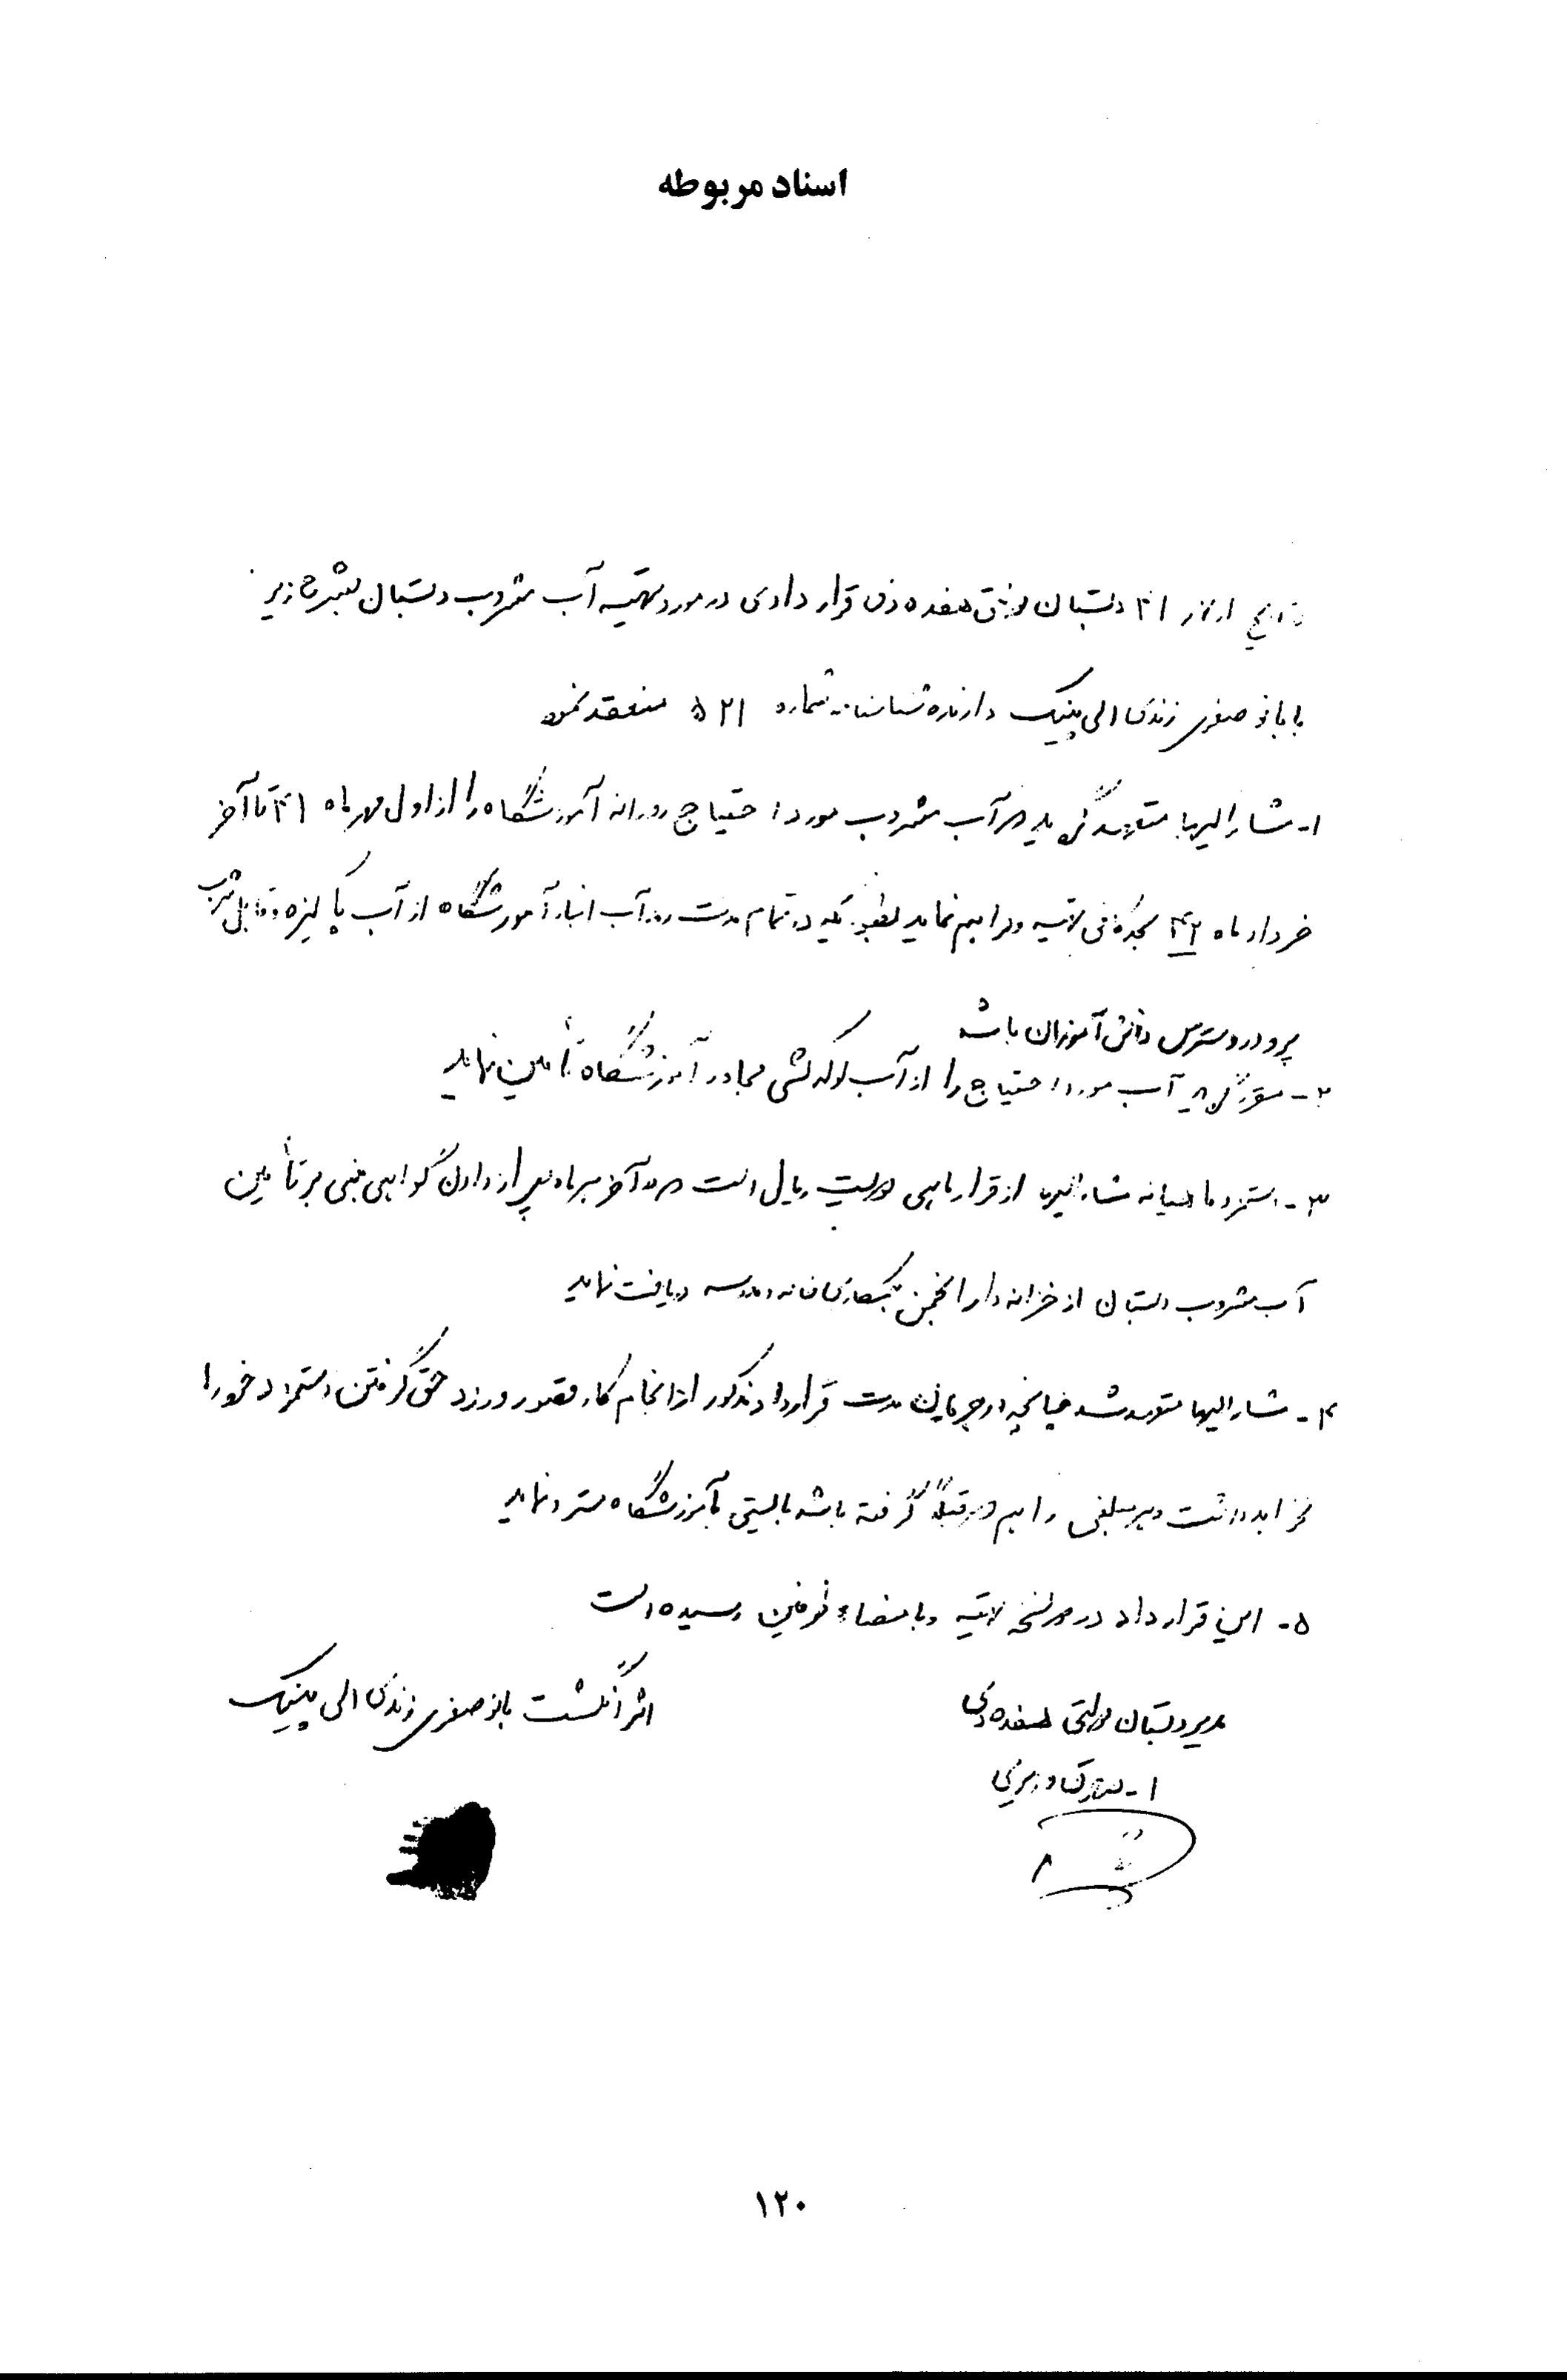 اسناد مربوطه
دبستان هفده دی قرار دادی در مورد تهیه آب مشروب دبستان بشرح زیر
با بانو صغری زندی الی بینیک دارنده شناسنامه شماره ۵۲۱ منعقد نمود
۱- مشارالیها متعهد گردید آب مشروب مورد احتیاج روزانه آموزشگاه را از اول مهر ماه ۴۱ تا آخر
خرداد ماه ۴۲ بحد کافی تهیه و فراهم نماید بطوریکه در تمام مدت روز آب انبار آموزشگاه از آب پاکیزه و قابل شرب
پر و در دسترس دانش آموزان باشد
۲- مقرر گردید آب مورد احتیاج را از آب لوله کشی مجاور آموزشگاه تأمین نماید
۳- دستمزد ماهیانه مشارالیها از قرار ماهی دویست ریال است که در آخر هر ماه پس از دادن گواهی مبنی بر تأمین
آب مشروب دبستان از خزانه دار انجمن همکاری خانه و مدرسه دریافت نماید
۴- مشارالیها متعهد شد چنانچه در جریان مدت قرارداد مذکور از انجام کار قصور ورزد حق گرفتن دستمزد خود را
نخواهد داشت و هر مبلغی را هم که قبلاً گرفته باشد بایستی بآموزشگاه مسترد نماید
۵- این قرار داد در دو نسخه تهیه و بامضاء طرفین رسیده است
مدیر دبستان دولتی هفده دی
اثر انگشت بانو صغری زندی الی بینیک
۱۲۰